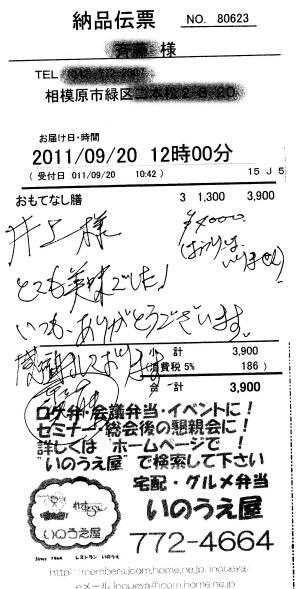 納品伝票 NO. 80623
様
TEL
相模原市緑区二本松2-8-20
お届け日・時間
2011/09/20 12時00分
( 受付日 011/09/20 10:42) 15 J 5
おもてなし膳 3 1,300 3,900
井上様
¥4000
おつりは
いりません
とても美味でした!
いつも、ありがとうございます。
感謝しております
小計 3,900
(消費税 5% 186)
合計 3,900
ロケ弁・会議弁当・イベントに!
セミナー・総会後の懇親会に!
詳しくは ホームページで!
"いのうえ屋" で検索して下さい
宅配・グルメ弁当
いのうえ屋
772-4664
いのうえ屋
Since 1964 レストラン いのうえ
http://members.jcom.home.ne.jp/inoueya/
eメール inoueya@jcom.home.ne.jp